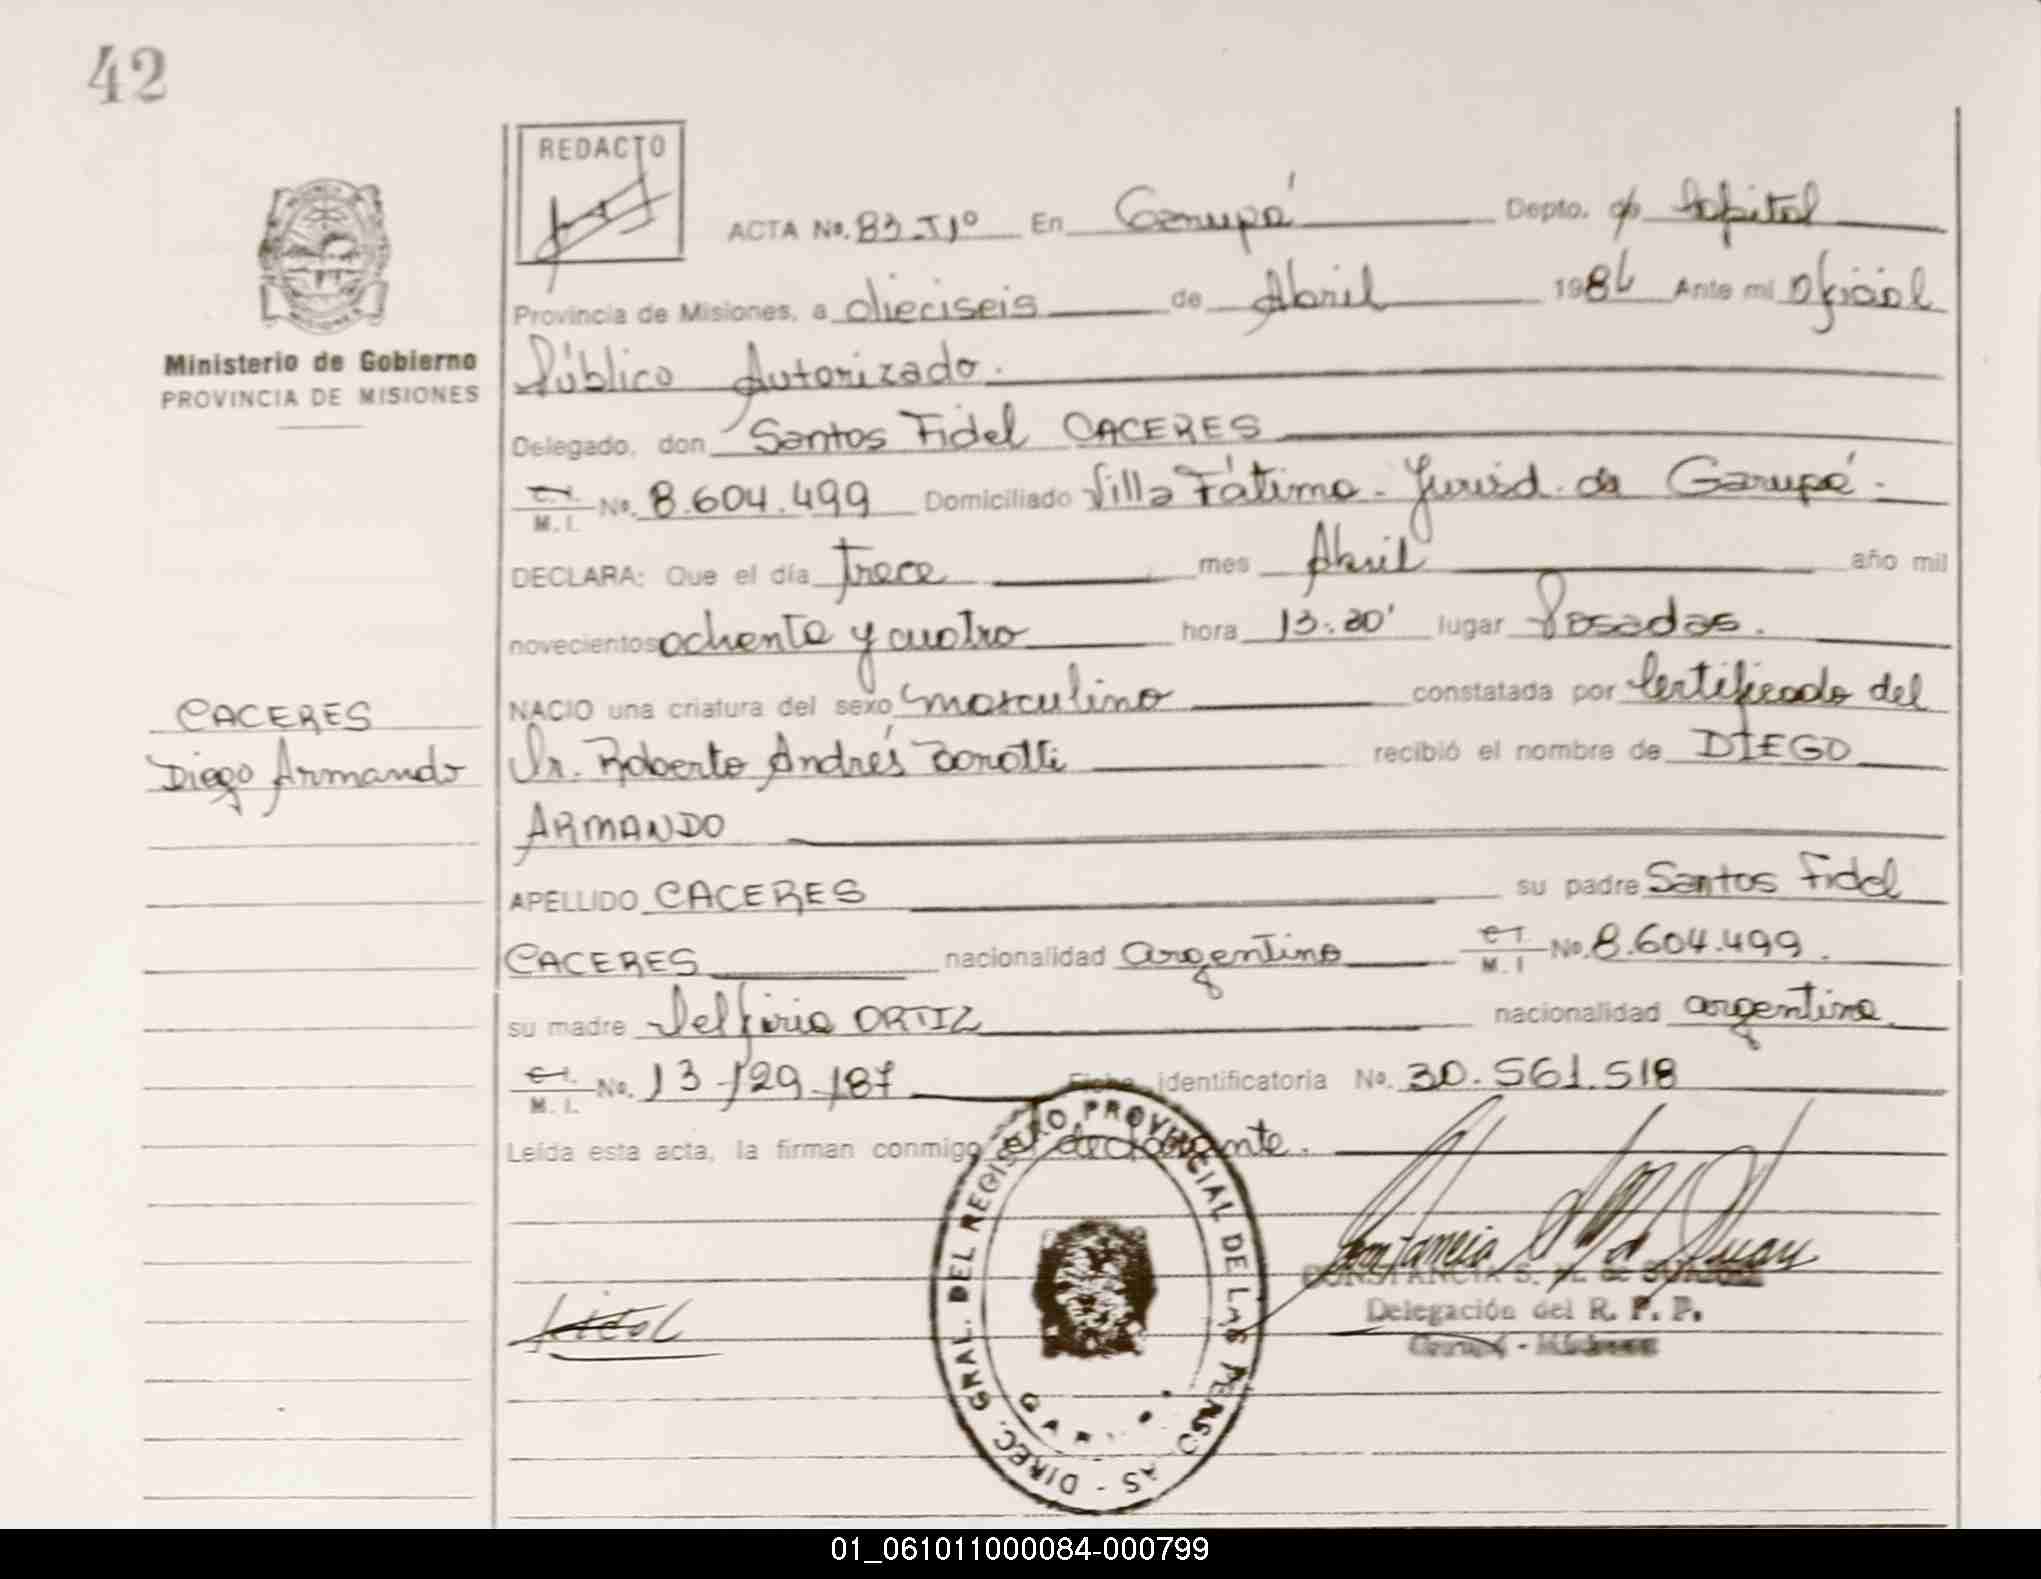 42
REDACTO
ACTA No. 83-Tº1º En Garupá Depto. de Capital
Provincia de Misiones, a dieciseis de Abril 1984 Ante mi Oficial
Ministerio de Gobierno
PROVINCIA DE MISIONES
Público Autorizado.
Delegado, don Santos Fidel CACERES
C.I. M.I. No. 8.604.499 Domiciliado Villa Fátima - Jurisd. de Garupá.-
DECLARA: Que el día trece mes Abril año mil
novecientos ochenta y cuatro hora 13:20' lugar Posadas.
CACERES
Diego Armando
NACIO una criatura del sexo masculino constatada por Certificado del
Dr. Roberto Andrés recibió el nombre de DIEGO
ARMANDO
APELLIDO CACERES su padre Santos Fidel
CACERES nacionalidad argentino C.I. M.I No. 8.604.499.
su madre Delfiria ORTIZ nacionalidad argentina
C.I. M.I. No. 13-129-187 Ficha identificatoria No. 30.561.518
Leída esta acta, la firman conmigo el declarante.
DIREC. GRAL. DEL REGISTRO PROVINCIAL DE LAS PERSONAS -
Fidel
CONSTANCIA S.
Delegación del R. P. P.
Garupá - Misiones
01_061011000084-000799